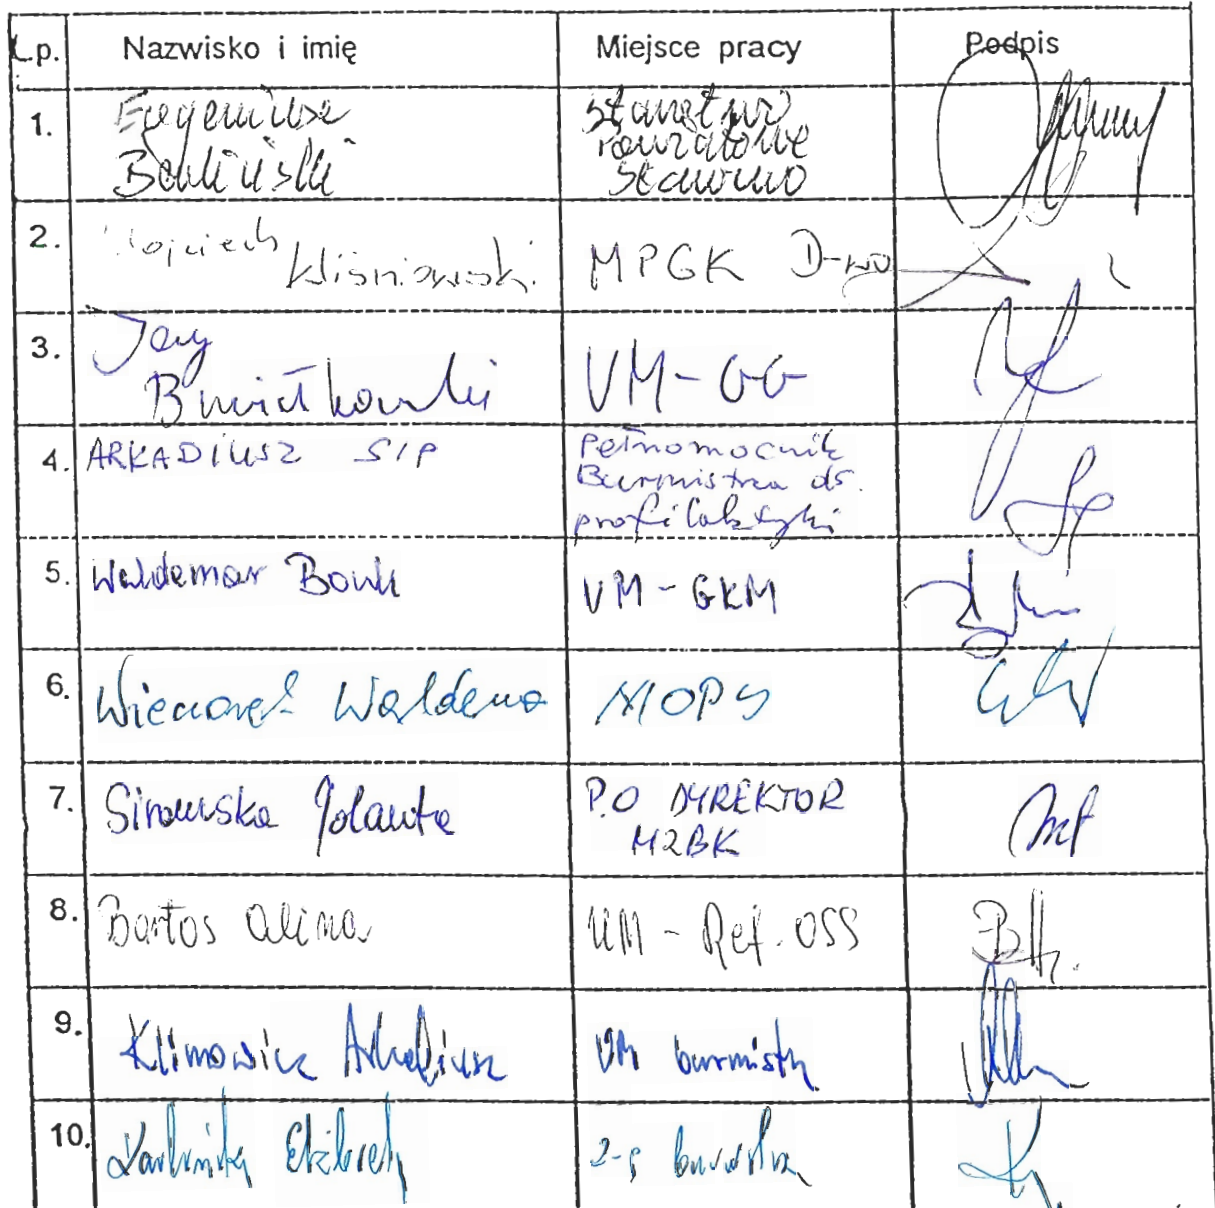 Lp. Nazwisko i imię Miejsce pracy Podpis
1. Eugeniusz Starostwo
Powiatowe
Sławno
2. Wojciech Wiśniowski MPGK D-wo
3. Jerzy UM-GG
4. ARKADIUSZ SIP Pełnomocnik
Burmistrza ds.
profilaktyki
5. Waldemar Bowk UM-GKM
6. Wieczorek Waldema MOPS
7. Sirowska Jolanta P.O DYREKTOR
MZBK
8. Bartos Alina UM - Ref. OSS
9. Klimowicz Arkadiusz UM burmistrz
10. Elżbieta z-ca burmistrza